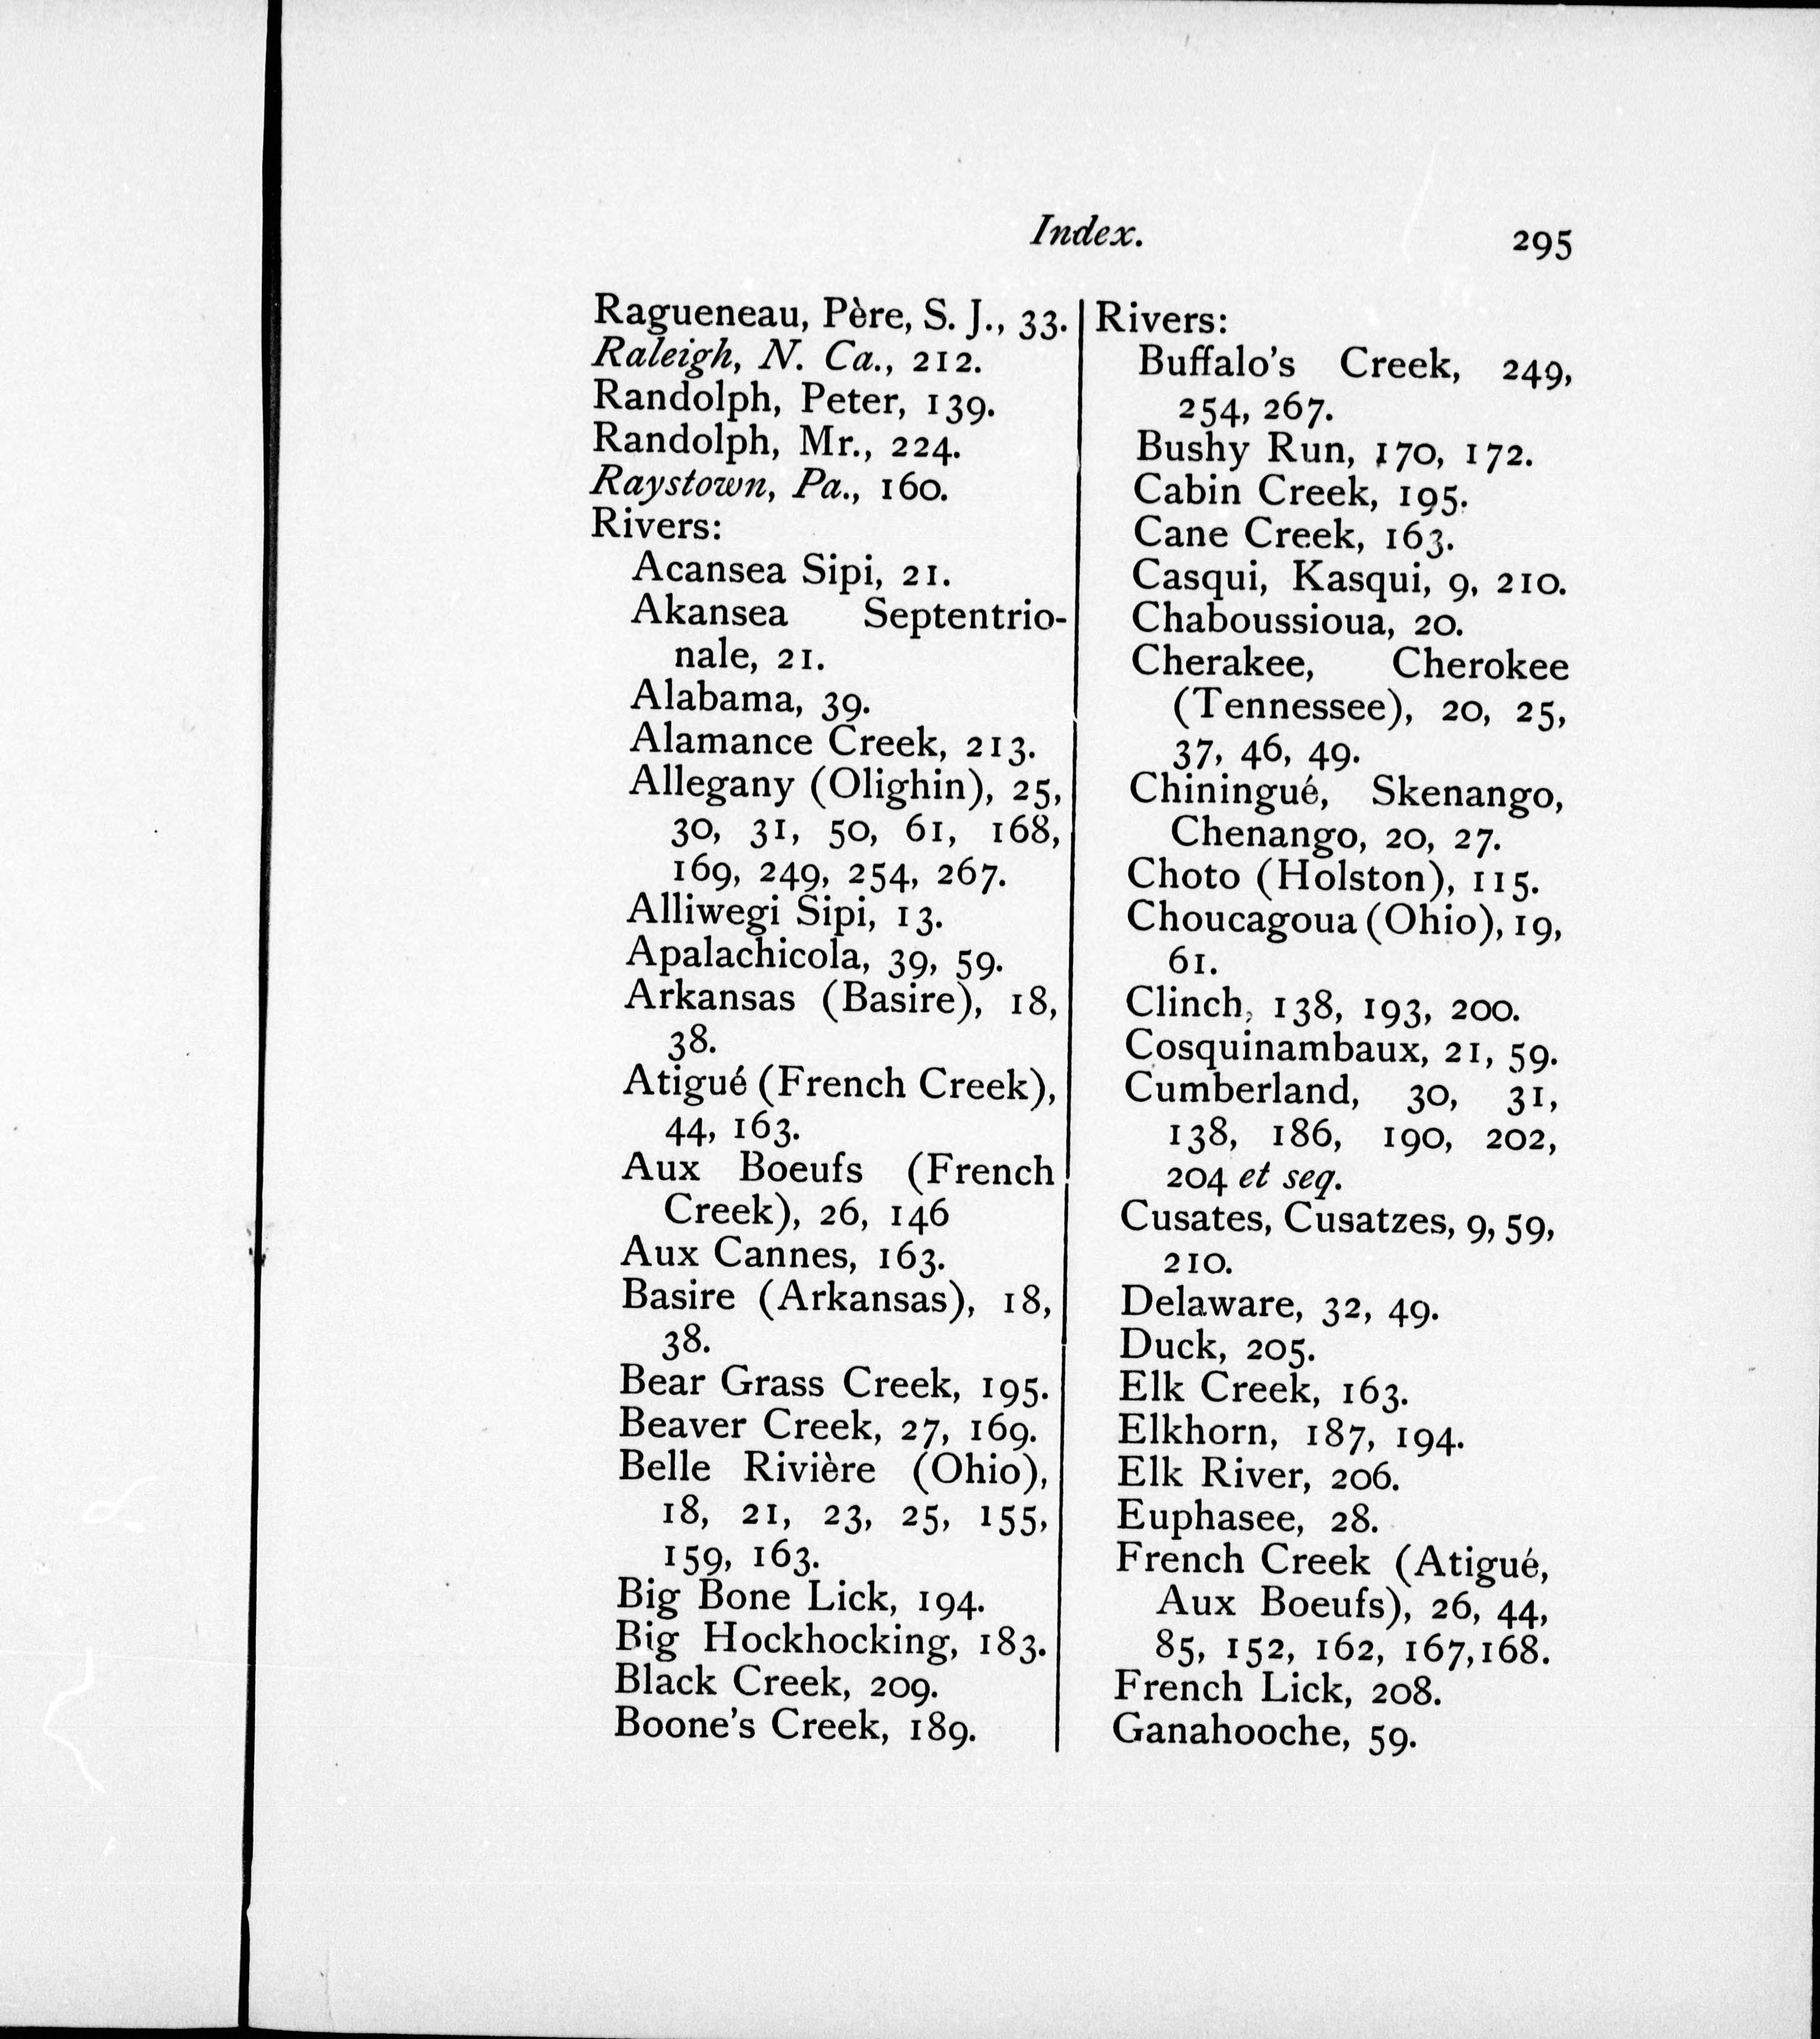 Index.
295
Ragueneau, Père, S. J., 33.
Raleigh, N. Ca., 212.
Randolph, Peter, 139.
Randolph, Mr., 224.
Raystown, Pa., 160.
Rivers:
Acansea Sipi, 21.
Akansea Septentrio-
nale, 21.
Alabama, 39.
Alamance Creek, 213.
Allegany (Olighin), 25,
30, 31, 50, 61, 168,
169, 249, 254, 267.
Alliwegi Sipi, 13.
Apalachicola, 39, 59.
Arkansas (Basire), 18,
38.
Atigué (French Creek),
44, 163.
Aux Boeufs (French
Creek), 26, 146
Aux Cannes, 163.
Basire (Arkansas), 18,
38.
Bear Grass Creek, 195.
Beaver Creek, 27, 169.
Belle Rivière (Ohio),
18, 21, 23, 25, 155,
159, 163.
Big Bone Lick, 194.
Big Hockhocking, 183.
Black Creek, 209.
Boone's Creek, 189.
Rivers:
Buffalo's Creek, 249,
254, 267.
Bushy Run, 170, 172.
Cabin Creek, 195.
Cane Creek, 163.
Casqui, Kasqui, 9, 210.
Chaboussioua, 20.
Cherakee, Cherokee
(Tennessee), 20, 25,
37, 46, 49.
Chiningué, Skenango,
Chenango, 20, 27.
Choto (Holston), 115.
Choucagoua (Ohio), 19,
61.
Clinch, 138, 193, 200.
Cosquinambaux, 21, 59.
Cumberland, 30, 31,
138, 186, 190, 202,
204 et seq.
Cusates, Cusatzes, 9, 59,
210.
Delaware, 32, 49.
Duck, 205.
Elk Creek, 163.
Elkhorn, 187, 194.
Elk River, 206.
Euphasee, 28.
French Creek (Atigué,
Aux Boeufs), 26, 44,
85, 152, 162, 167,168.
French Lick, 208.
Ganahooche, 59.